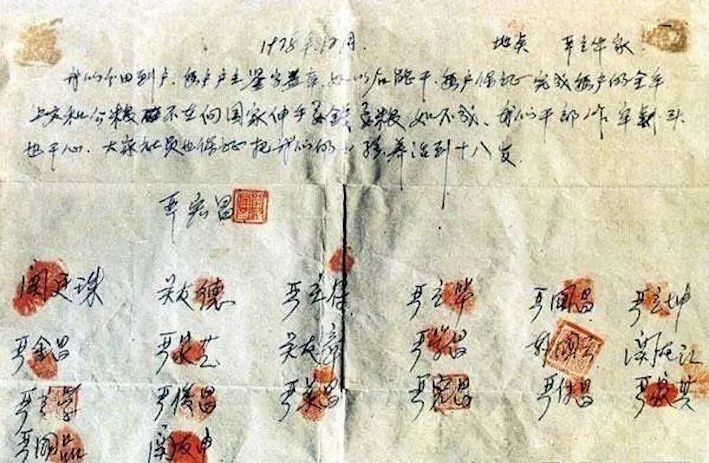 1978年12月. 地点 严立华家
我们分田到户,每户户主签字盖章,如以后能干,每户保证完成每户的全年
上交和公粮 不在向国家伸手要钱要粮 如不成,我们干部作牢杀头
也干心,大家社员也保证把我们的小孩养活到十八岁
严宏昌
关廷珠 关友德 严立符 严立华 严国昌 严立坤
严金昌 严家芝 关友章 严学昌 韩国云 关友江
严立学 严俊昌 严美昌 严宏昌 严付昌 严家其
严国品 关友申